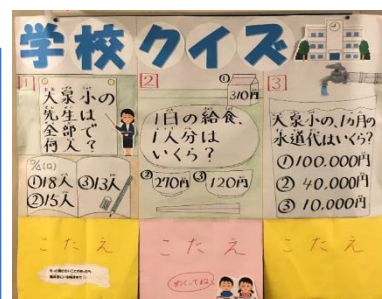 学校クイズ
1
大泉小の
先生は
全部で
何人？
①18人 ③13人
②15人
2
1日の給食、
1人分は
いくら？
①
310円
②270円 ③120円
3
大泉小の、1ヵ月の
水道代はいくら？
①100.000円
② 40.000円
③ 10.000円
こたえ
こたえ
めくってね
こたえ